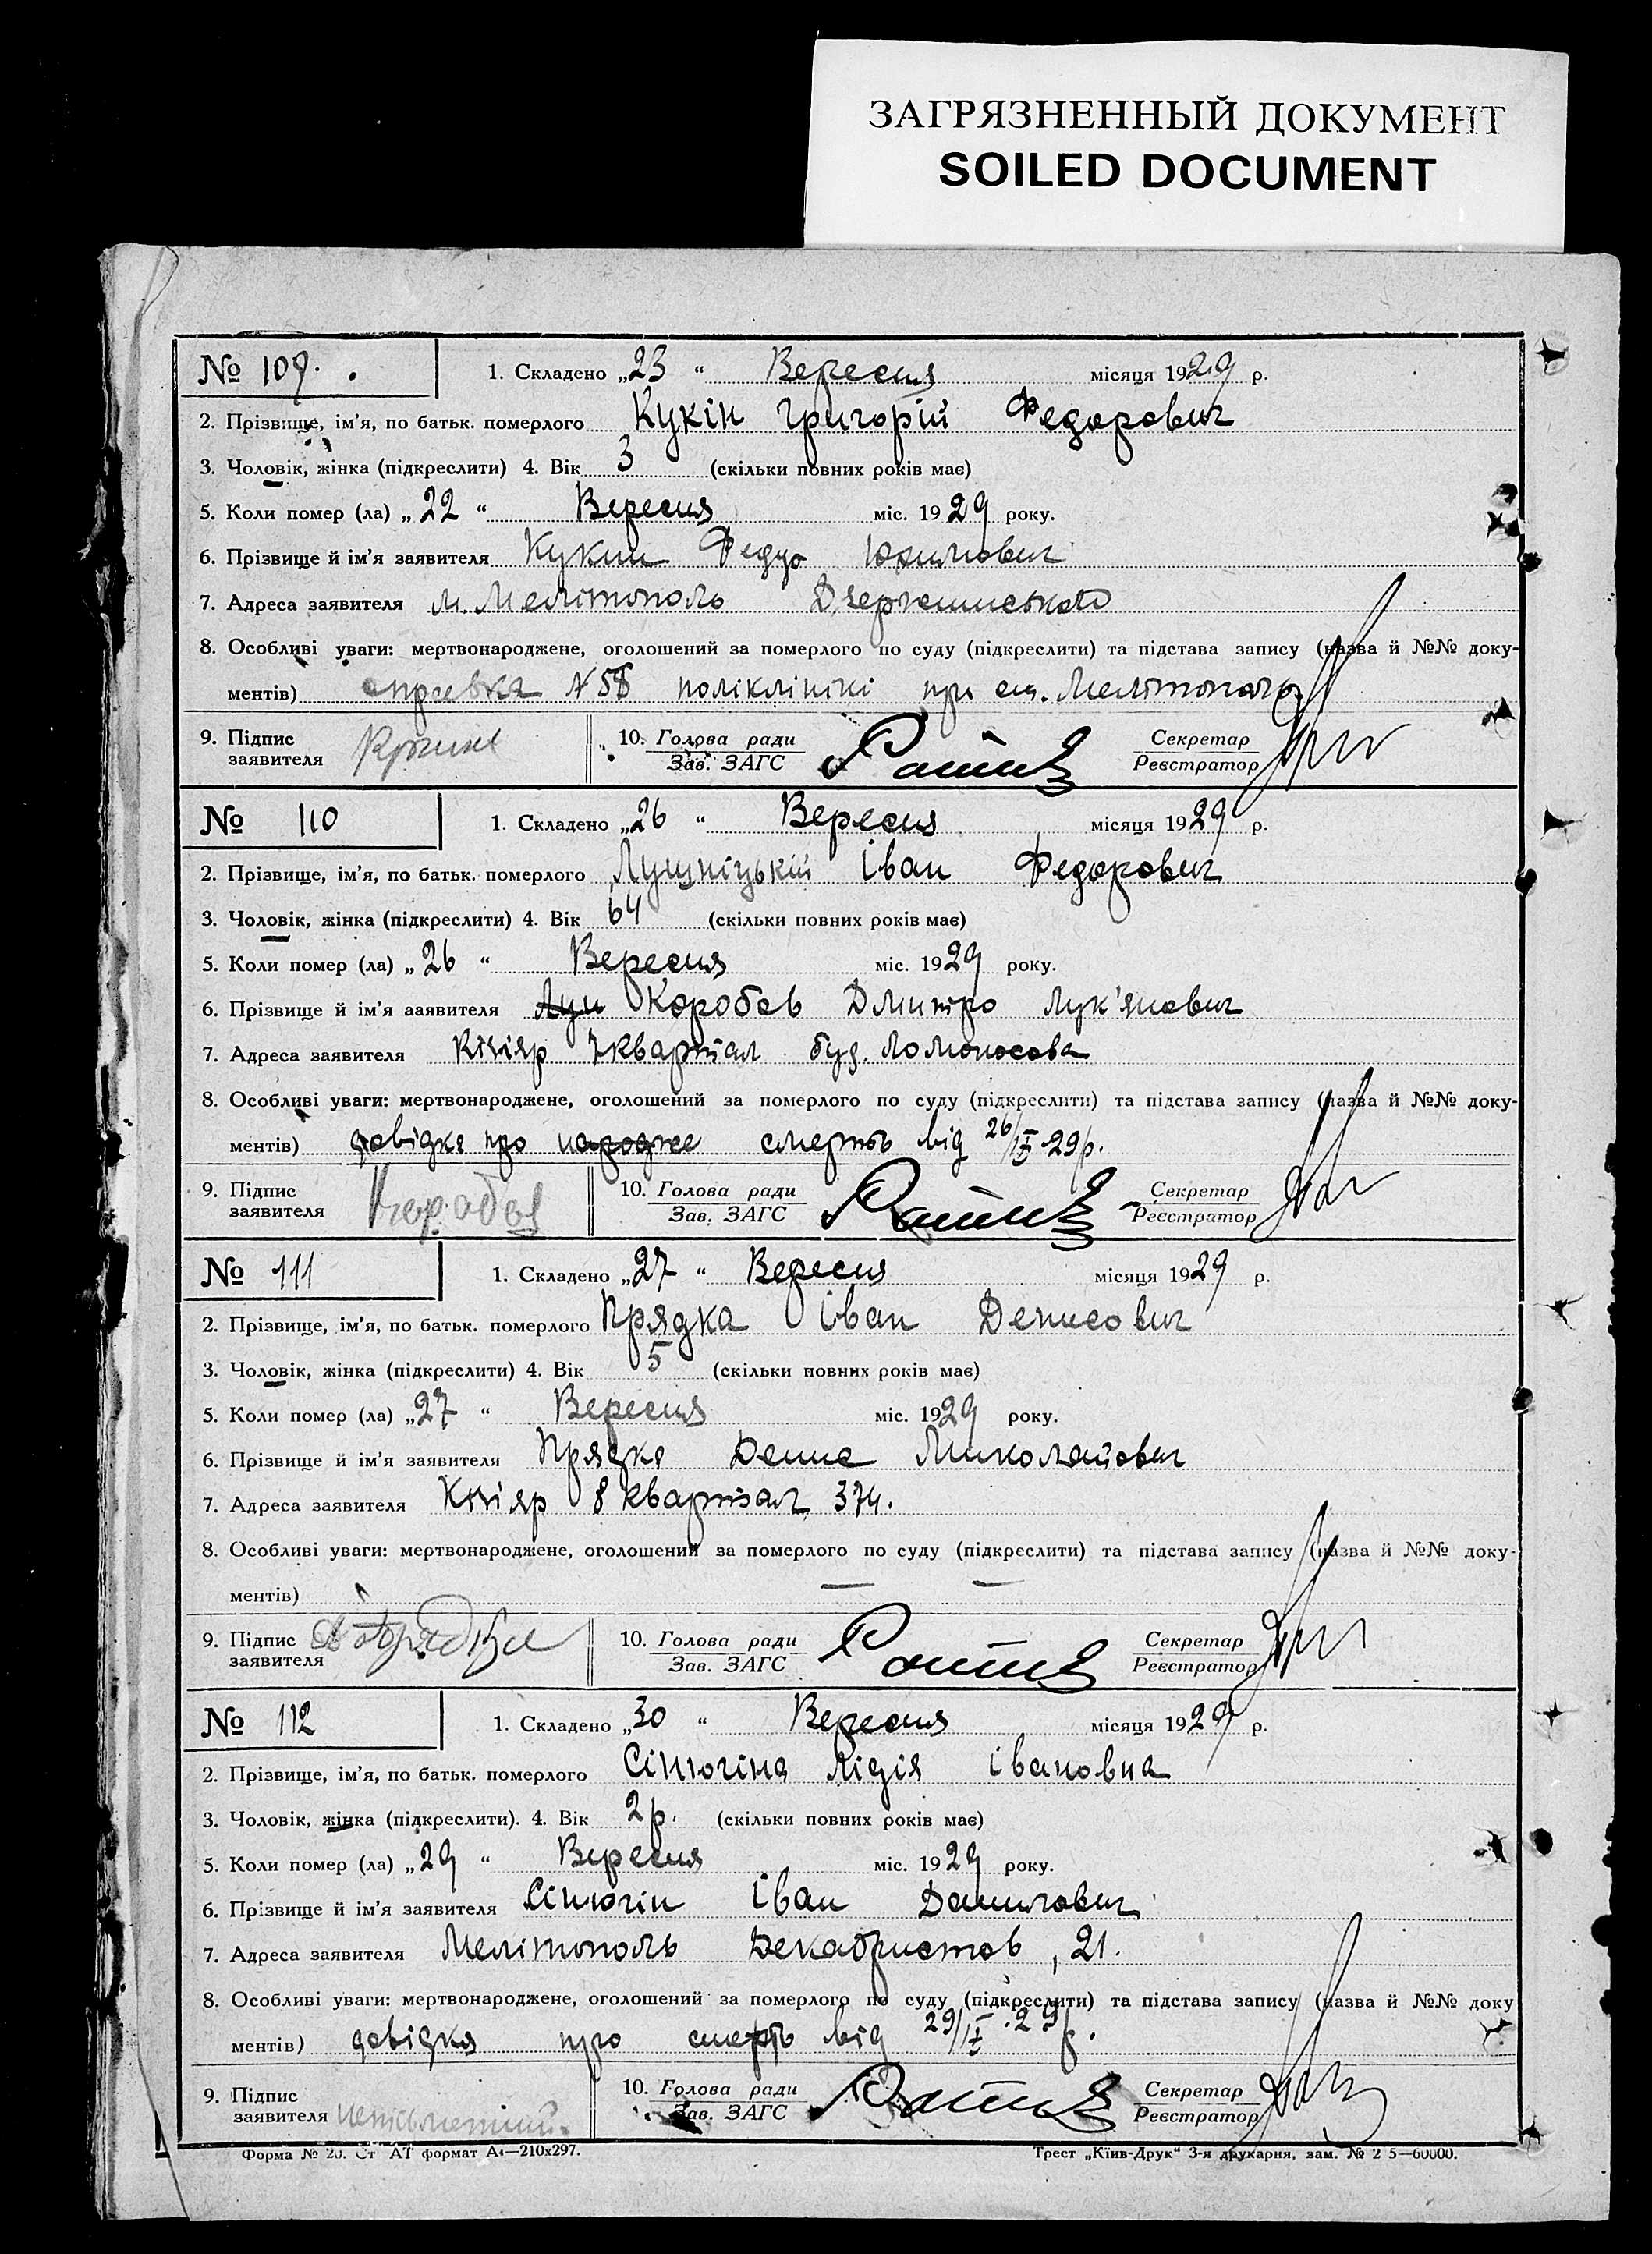 ЗАГРЯЗНЕННЫЙ ДОКУМЕНТ
SOILED DOCUMENT
№ 109. 1. Складено „23“ Вересня місяця 1929 р.
2. Прізвище, ім'я, по батьк. померлого Кукін Григорій Федорович
3. Чоловік, жінка (підкреслити) 4. Вік 3 (скільки повних років має)
5. Коли помер (ла) „22“ Вересня міс. 1929 року.
6. Прізвище й ім'я заявителя Кукин Федір Юхимович
7. Адреса заявителя м. Мелітополь Дзержинського
8. Особливі уваги: мертвонароджене, оголошений за померлого по суду (підкреслити) та підстава запису (назва й №№ доку-
ментів) справка №58 поліклінікі при ст. Мелітополь
9. Підпис заявителя 10. Голова ради Зав. ЗАГС Секретар Реєстратор
№ 110 1. Складено „26“ Вересня місяця 1929 р.
2. Прізвище, ім'я, по батьк. померлого Лущніцькій Іван Федорович
3. Чоловік, жінка (підкреслити) 4. Вік 64 (скільки повних років має)
5. Коли помер (ла) „26“ Вересня міс. 1929 року.
6. Прізвище й ім'я ааявителя Коробов Дмитро Лук'янович
7. Адреса заявителя Кізіяр 7 квартал буд. Ломоносова
8. Особливі уваги: мертвонароджене, оголошений за померлого по суду (підкреслити) та підстава запису (назва й №№ доку-
ментів) довідка про народже смерть від 26/IX-29р.
9. Підпис заявителя 10. Голова ради Зав. ЗАГС Секретар Реєстратор
№ 111 1. Складено „27“ Вересня місяця 1929 р.
2. Прізвище, ім'я, по батьк. померлого Прядка Іван Денисович
3. Чоловік, жінка (підкреслити) 4. Вік 5 (скільки повних років має)
5. Коли помер (ла) „27“ Вересня міс. 1929 року.
6. Прізвище й ім'я заявителя Прядка Денис Миколайович
7. Адреса заявителя Кізіяр 8 квартал 374.
8. Особливі уваги: мертвонароджене, оголошений за померлого по суду (підкреслити) та підстава запису (назва й №№ доку-
ментів) — —
9. Підпис заявителя 10. Голова ради Зав. ЗАГС Секретар Реєстратор
№ 112 1. Складено „30“ Вересня місяця 1929 р.
2. Прізвище, ім'я, по батьк. померлого Сінюгіна Лідія Івановна
3. Чоловік, жінка (підкреслити). 4. Вік 2р. (скільки повних років має)
5. Коли помер (ла) „29“ Вересня міс. 1929 року.
6. Прізвище й ім'я заявителя Сінюгін Іван Данилович
7. Адреса заявителя Мелітополь Декабристов, 21.
8. Особливі уваги: мертвонароджене, оголошений за померлого по суду (підкреслити) та підстава запису (назва й №№ доку
ментів) довідка про смерть від 29/IX-29р.
9. Підпис заявителя 10. Голова ради Зав. ЗАГС Секретар Реєстратор
Форма № 20. Ст АТ формат А4—210х297. Трест „Київ-Друк“ 3-я друкарня, зам. № 2 5—60000.